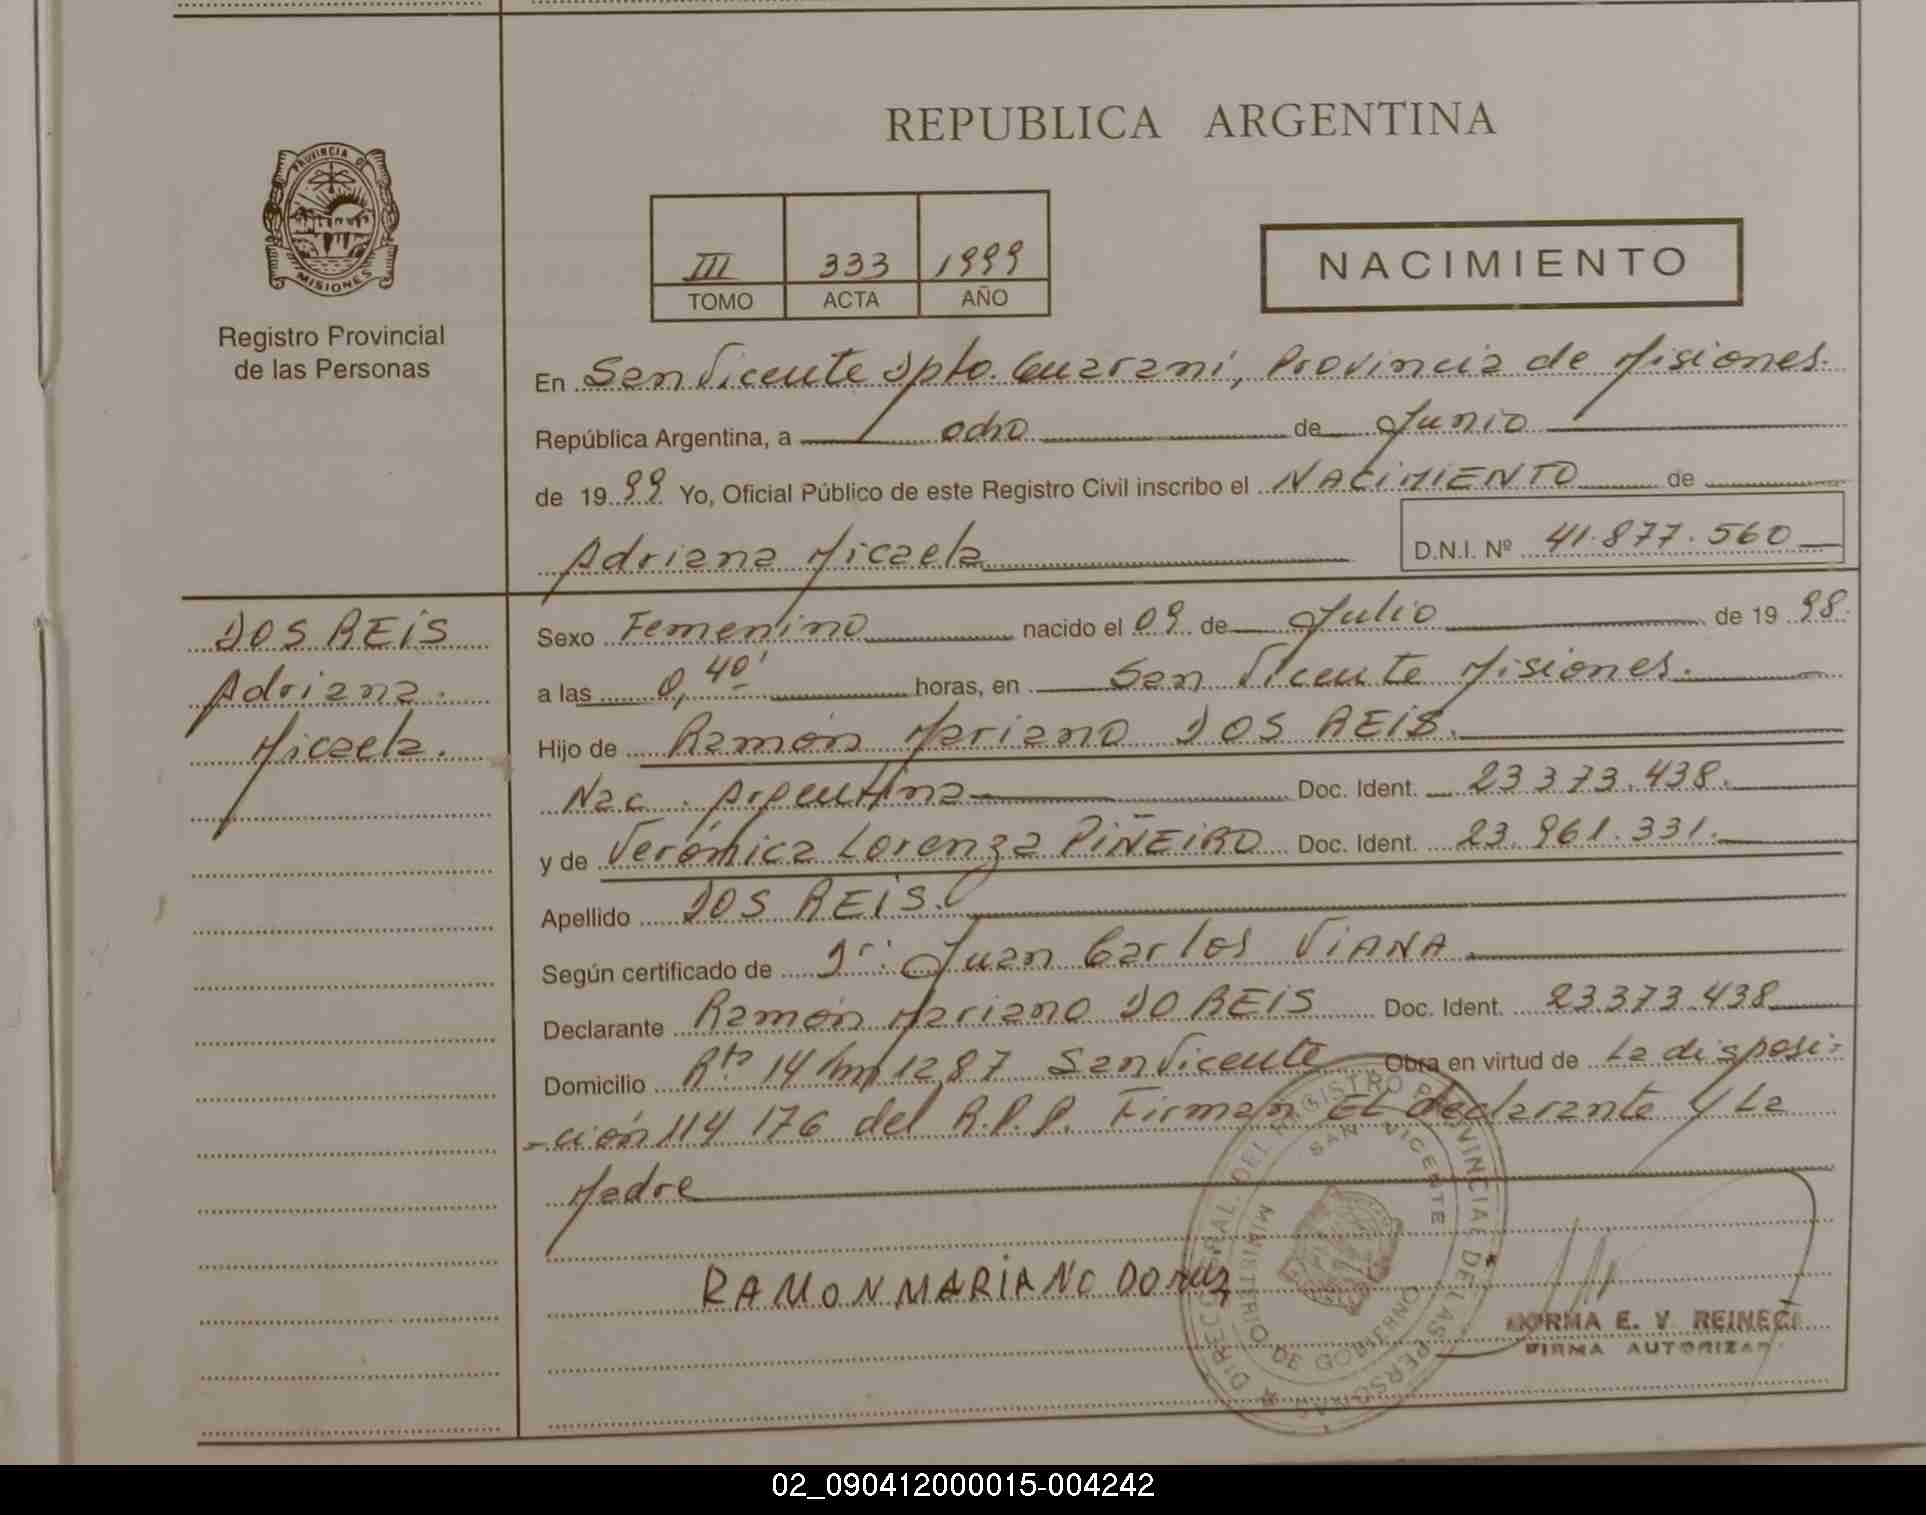 REPUBLICA ARGENTINA
PROVINCIA DE
MISIONES
Registro Provincial
de las Personas
III 333 1999
TOMO ACTA AÑO
NACIMIENTO
En San Vicente Dpto. Guaraní, Provincia de Misiones.
República Argentina, a ocho de Junio
de 1999 Yo, Oficial Público de este Registro Civil inscribo el NACIMIENTO de
Adriana Micaela
D.N.I. Nº 41.877.560
DOS REIS
Adriana.
Micaela.
Sexo Femenino nacido el 09 de Julio de 1998.
a las 0,40' horas, en San Vicente Misiones.
Hijo de Ramón Mariano DOS REIS.
Nac. Argentina Doc. Ident. 23373.438.
y de Verónica Lorenza PIÑEIRO Doc. Ident. 23.961.331.
Apellido DOS REIS.
Según certificado de Dr: Juan Carlos VIANA
Declarante Ramón Mariano DO REIS Doc. Ident. 23.373.438
Domicilio Rta 14 km 1287 San Vicente Obra en virtud de La disposi-
-ción 114 176 del R.P.P. Firman El declarante y La
Madre
RAMON MARIANO DO
DIREC. GRAL. DEL REGISTRO PROVINCIAL DE LAS PERSONAS
SAN VICENTE
MINISTERIO DE GOBIERNO
NORMA E. V. REINECK
FIRMA AUTORIZADA
02_090412000015-004242